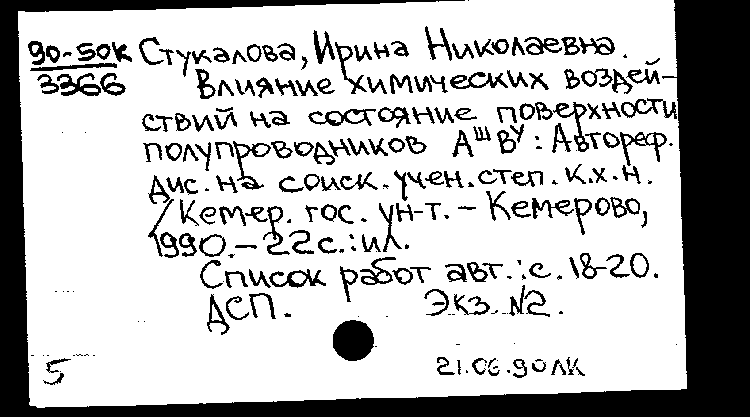 90-50К Стукалова, Ирина Николаевна.
3366 Влияние химических воздей-
ствий на состояние поверхности
полупроводников АᴵᴵᴵВⱽ : Автореф.
дис. на соиск. учен. степ. к.х.н.
/Кемер. гос. ун-т. – Кемерово,
1990. – 22 с. : ил.
Список работ авт. : с. 18-20.
ДСП. Экз. N2.
5 21.06.90 ЛК